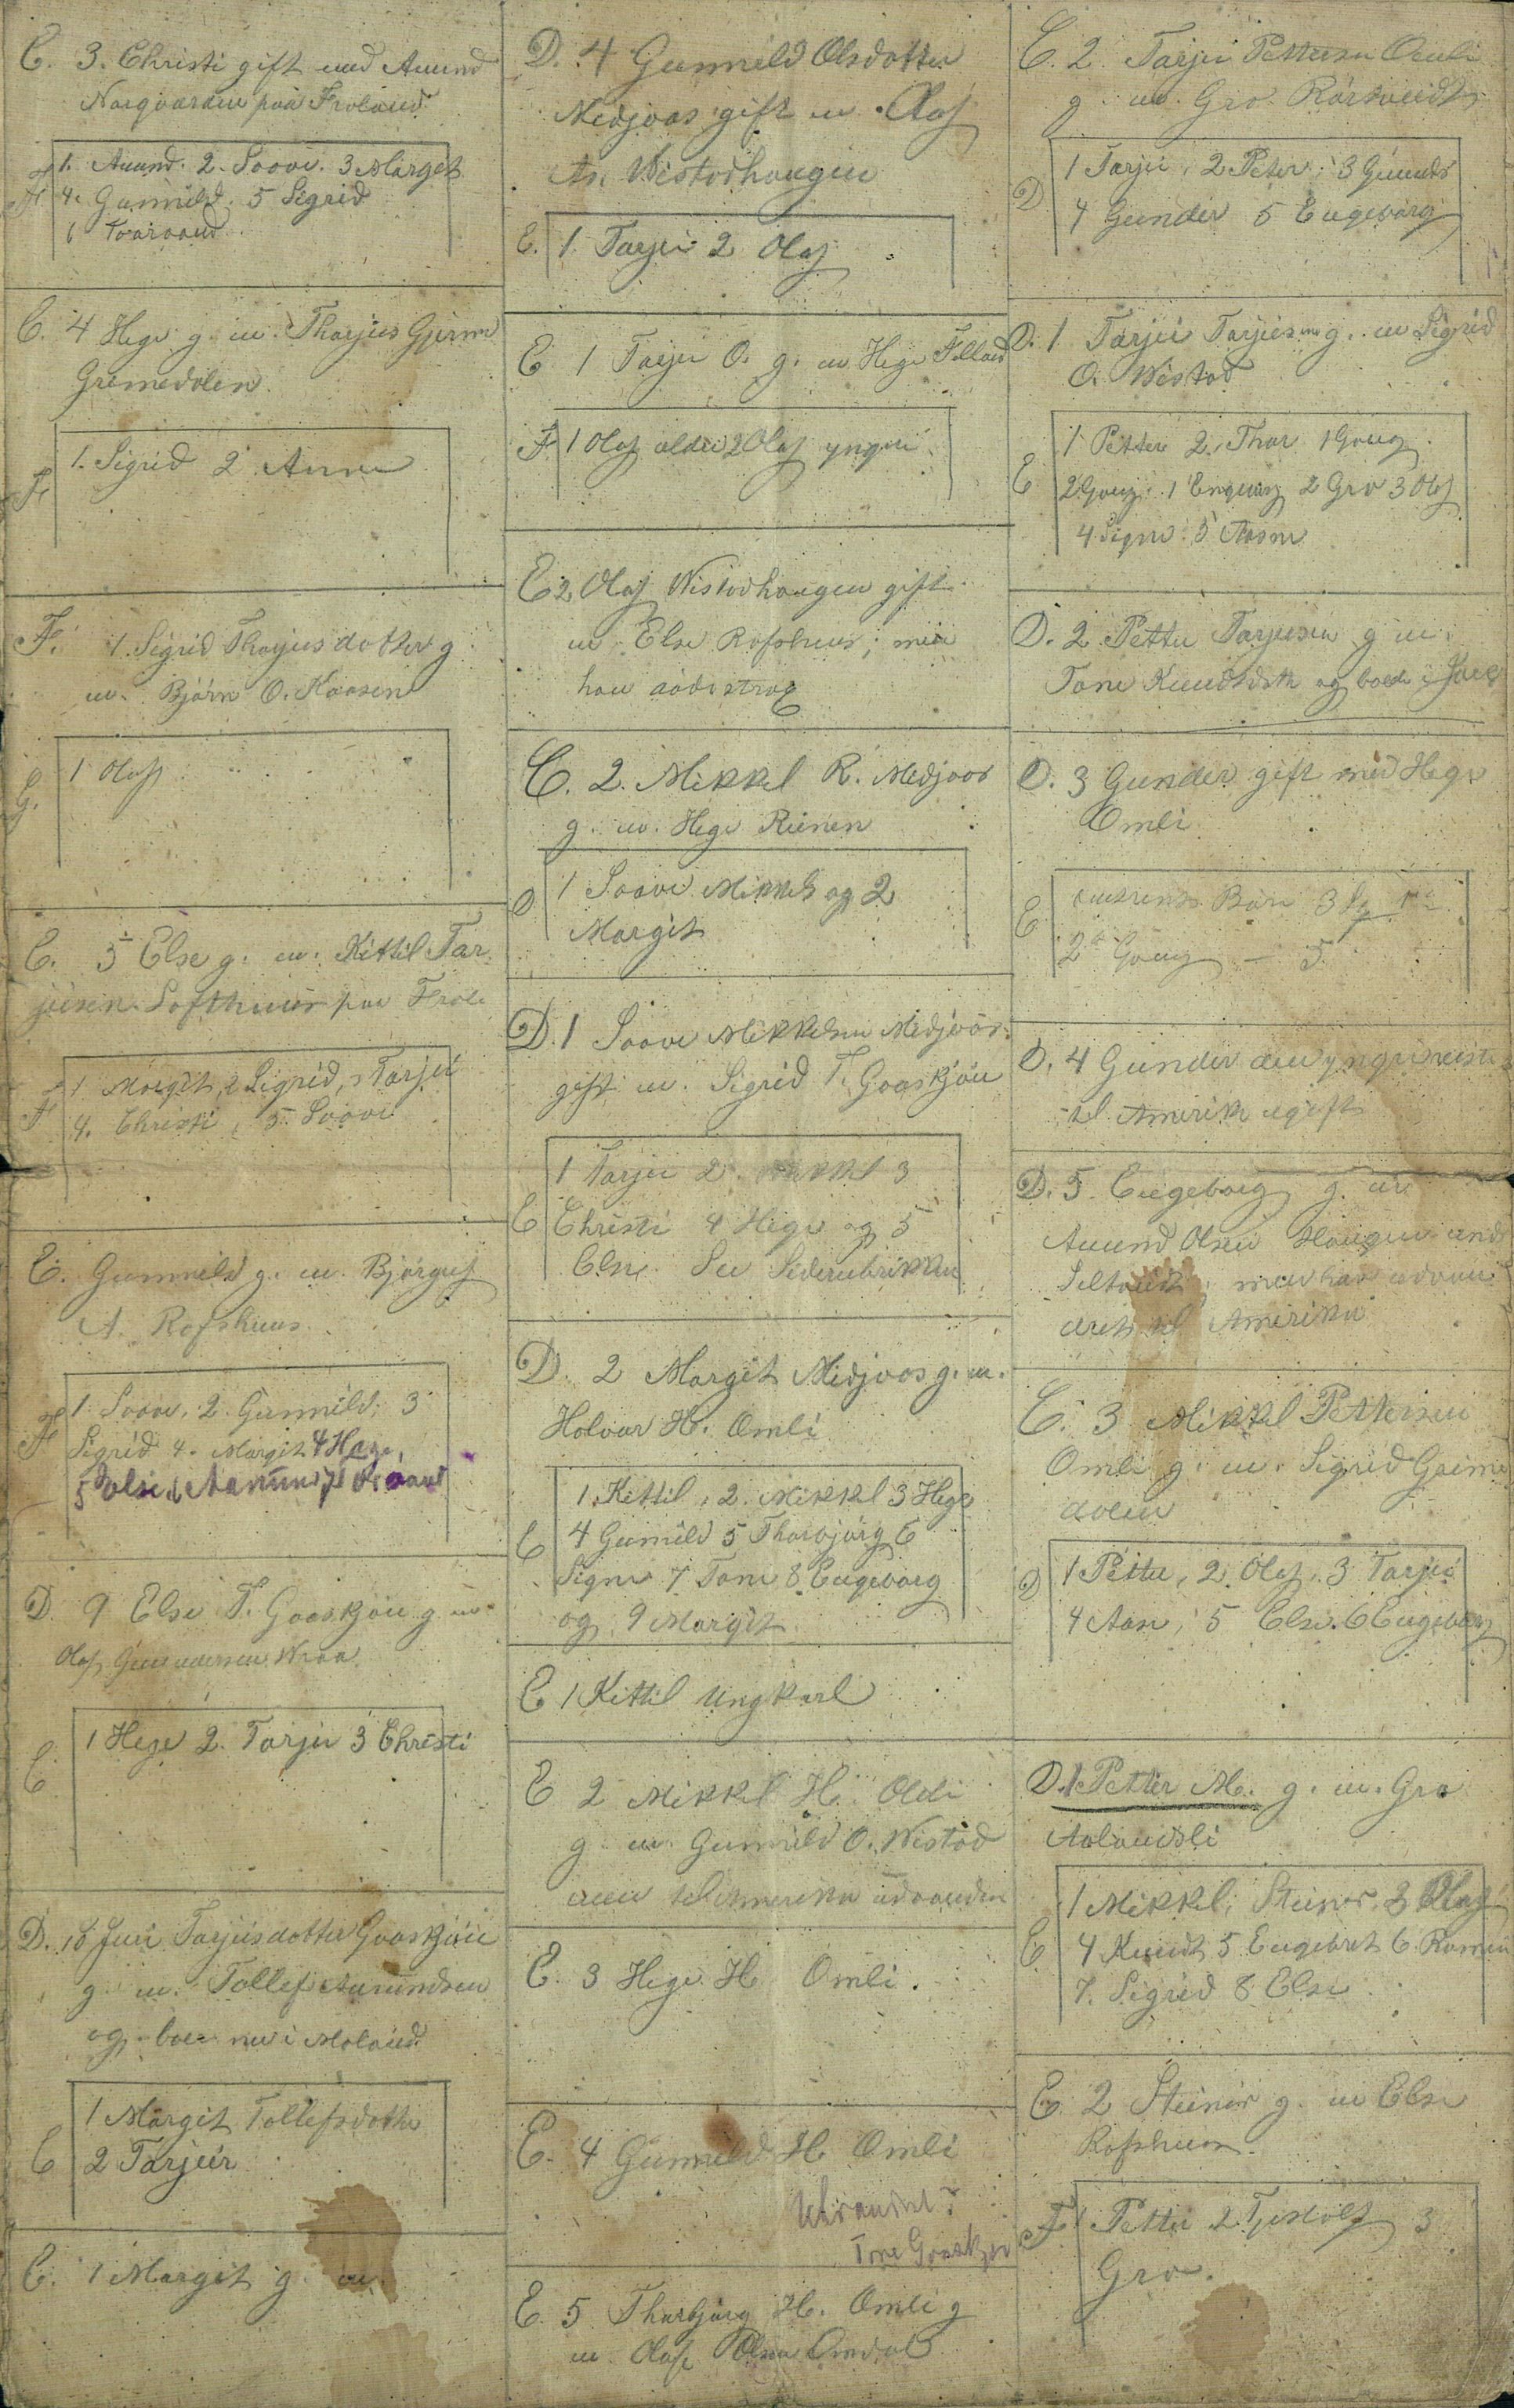 E. 3. Christi gift med Amund
Norgaarden paa Froland
F 1. Amund. 2. Soove. 3 Margit
4. Gunnild. 5 Sigrid
6
E. 4 Hege g. m. Tharjus
Gremedolen
F 1. Sigrid 2 Anne
F. 1. Sigrid Tharjusdotter g
m. Bjørn O. Kaasen
G. 1 Olaf
E. 5 Else g. m. Kittil Tar
jusen. Lofthuus paa Frol.
F 1 Margit, 2 Sigrid, 3 Tarjei
4. Christi, 5. Soove
E. Gunnild g. m. Bjørguf
A. Rofshuus
F 1 Soove, 2. Gunnild, 3
Sigrid 4. Margit 4 Hege,
5 Else 6 Aanund 7
D 9 Else T. Gaaskjøn g m
Olaf Gunundersen Wraa
E 1 Hege 2. Tarjei 3 Christi
D. 10 Juri Tarjusdotter Gaaskjøn
g. m. Tollef Aanundsen
og boer nu i Moland
E 1 Margit Tollefsdotter
2 Tarjeir
E. 1 Margit g. m.
D. 4 Gunnild Olsdotter
Midjaas gift m. Olaf
As. Wistodhaugen
E. 1 Tarjei 2 Olaf
E 1 Tarjei O. g. m Hege
F 1 Olaf aldri 2 Olaf yngri
E 2 Olaf Wistodhaugen gift
m. Else Rofshuus; men
han døde strax
C. 2. Mikkel R. Midjaas
g. m. Hege Reinen
D 1 Soove Mikkels og 2
Margit
D. 1 Soove Mikkelsen Midjaas
gift m. Sigrid T. Gaaskjøn
E 1 Tarjei 2. Mikkel 3
Christi 4 Hege og 5
Else. See Siderubrikken
D. 2 Margit Midjaas g. m.
Holvar H. Omli
E 1. Kittil, 2. Mikkel 3 Hege
4 Gunnild 5 Thorbjørg 6
Signe 7 Tone 8 Engeborg
og 9 Margit
E 1 Kittil Ungkarl
E 2 Mikkel H. Omli
g m Gunnild O. Wistod
men til Amerika udvandra
E. 3 Hege H Omli.
E. 4 Gunnild H Omli
Tone Gaaskjøn
E. 5 Thorbjørg H. Omli g
m. Olaf Olsen Omdal
C. 2 Tarjei Pettersen Omli
g. m. Gro
D 1 Tarjei, 2 Peter, 3 Gunder
4 Gunder 5 Engeborg
D. 1 Tarjei Tarjeisen g. m Sigrid
O. Wistod
E 1 Petter 2, Thor 1 Gang
2 Gang. 1 Engeborg 2 Gro 3 Olaf
4 Signe 5 Aasne
D. 2 Petter Tarjusen g m.
Tone og boede i
D. 3 Gunder gift med Hege
Omli
E Børn 3
2den Gang — 5
D. 4 Gunder den yngri reiste
til Amerika ugift
D. 5 Engeborg g. m
Amund Olsen Haugen
men har udvan
dret til Amerika
C. 3 Mikkel Pettersen
Omli g. m. Sigrid Greime
dolen
D 1 Petter, 2 Olaf, 3 Tarjei
4 Aan, 5 Else. 6 Engeborg
D. 1 Petter M. g. m. Gro
Aalandsli
E 1 Mikkel; Steinar, 3 Olaf
4 Knudt 5 Engebret 6
7. Sigrid 8 Else
E. 2 Steinar g. m Else
Rofshuus.
F 1 Petter 2 Tjostolf 3
Gro.